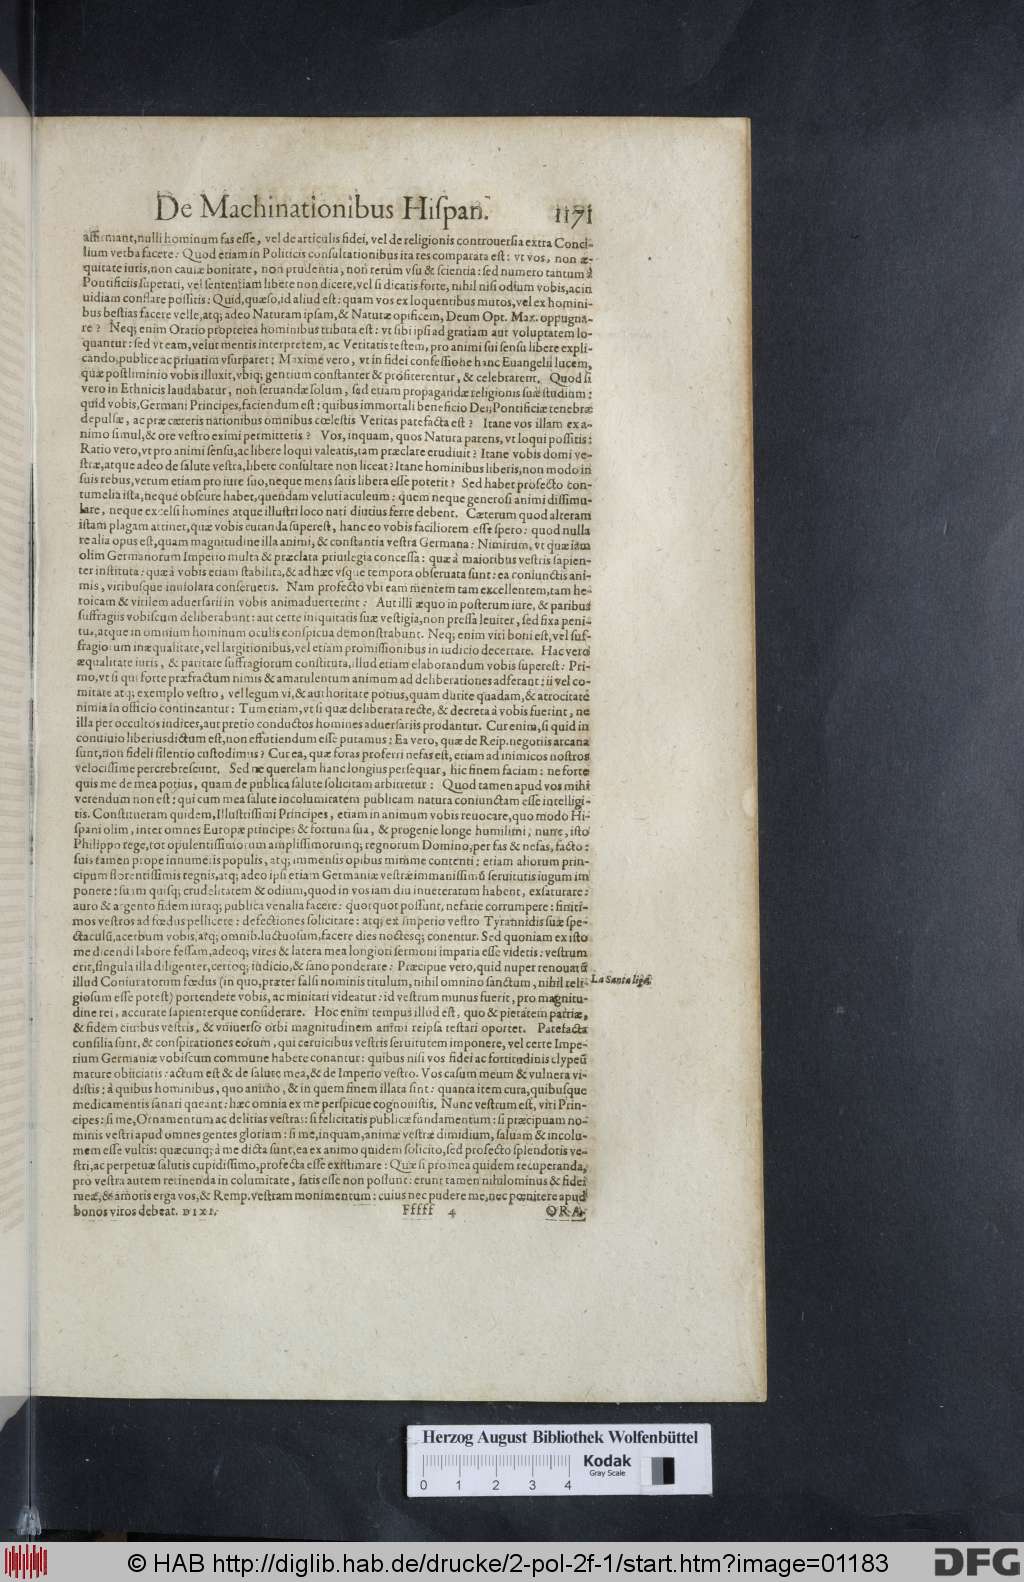 De Machinationibus Hiſpan. 1171
affirmant, nulli hominum fas eſſe, vel de articulis fidei, vel de religionis controuerſia extra Conci-
lium verba facere: Quod etiam in Politicis conſultationibus ita res comparata eſt: vt vos, non æ-
quitate iuris, non cauſæ bonitate, non prudentia, non rerum vſu & ſcientia: ſed numero tantum à
Pontificiis ſuperati, vel ſententiam libere non dicere, vel ſi dicatis forte, nihil niſi odium vobis, ac in
uidiam conflare poſſitis: Quid, quæſo, id aliud eſt: quam vos ex loquentibus mutos, vel ex homini-
bus beſtias facere velle, atq; adeo Naturam ipſam, & Naturæ opificem, Deum Opt. Max. oppugna-
re? Neq; enim Oratio propterea hominibus tributa eſt: vt ſibi ipſi ad gratiam aut voluptatem lo-
quantur: ſed vt eam, velut mentis interpretem, ac Veritatis teſtem, pro animi ſui ſenſu libere expli-
cando, publice ac priuatim vſurparet: Maxime vero, vt in fidei confeſſione hanc Euangelii lucem,
quæ poſtliminio vobis illuxit, vbiq; gentium conſtanter & profiterentur, & celebrarent. Quod ſi
vero in Ethnicis laudabatur, non ſeruandæ ſolum, ſed etiam propagandæ religionis ſuæ ſtudium:
quid vobis, Germani Principes, faciendum eſt: quibus immortali beneficio Dei, Pontificiæ tenebræ
depulſæ, ac præ cæteris nationibus omnibus cœleſtis Veritas patefacta eſt? Itane vos illam ex a-
nimo ſimul, & ore veſtro eximi permittetis? Vos, inquam, quos Natura parens, vt loqui poſſitis:
Ratio vero, vt pro animi ſenſu, ac libere loqui valeatis, tam præclare erudiuit? Itane vobis domi ve-
ſtræ, atque adeo de ſalute veſtra, libere conſultare non liceat? Itane hominibus liberis, non modo in
ſuis rebus, verum etiam pro iure ſuo, neque mens ſatis libera eſſe poterit? Sed habet profecto con-
tumelia iſta, neque obſcure habet, quendam veluti aculeum: quem neque generoſi animi diſſimu-
lare, neque excelſi homines atque illuſtri loco nati diutius ferre debent. Cæterum quod alteram
iſtam plagam attinet, quæ vobis curanda ſupereſt, hanc eo vobis faciliorem eſſe ſpero: quod nulla
re alia opus eſt, quam magnitudine illa animi, & conſtantia veſtra Germana: Nimirum, vt quæ iam
olim Germanorum Imperio multa & præclara priuilegia conceſſa: quæ à maioribus veſtris ſapien-
ter inſtituta: quæ à vobis etiam ſtabilita, & ad hæc vſque tempora obſeruata ſunt: ea coniunctis ani-
mis, viribuſque inuiolata conſeruetis. Nam profecto vbi eam mentem tam excellentem, tam he-
roicam & virilem aduerſarii in vobis animaduerterint: Aut illi æquo in poſterum iure, & paribus
ſuffragiis vobiſcum deliberabunt: aut certe iniquitatis ſuæ veſtigia, non preſſa leuiter, ſed fixa peni-
tus, atque in omnium hominum oculis conſpicua demonſtrabunt. Neq; enim viri boni eſt, vel ſuf-
fragiorum inæqualitate, vel largitionibus, vel etiam promiſſionibus in iudicio decertare. Hac vero
æqualitate iuris, & paritate ſuffragiorum conſtituta, illud etiam elaborandum vobis ſupereſt: Pri-
mo, vt ſi qui forte præfractum nimis & amarulentum animum ad deliberationes adferant: ii vel co-
mitate atq; exemplo veſtro, vel legum vi, & authoritate potius, quam durite quadam, & atrocitate
nimia in officio contineantur: Tum etiam, vt ſi quæ deliberata recte, & decreta à vobis fuerint, ne
illa per occultos indices, aut pretio conductos homines aduerſariis prodantur. Cur enim, ſi quid in
conuiuio liberius dictum eſt, non effutiendum eſſe putamus: Ea vero, quæ de Reip. negotiis arcana
ſunt, non fideli ſilentio cuſtodimus? Cur ea, quæ foras proferri nefas eſt, etiam ad inimicos noſtros
velociſſime percrebreſcunt. Sed ne querelam hanc longius perſequar, hic finem faciam: ne forte
quis me de mea potius, quam de publica ſalute ſolicitam arbitretur: Quod tamen apud vos mihi
verendum non eſt: qui cum mea ſalute incolumitatem publicam natura coniunctam eſſe intelligi-
tis. Conſtitueram quidem, Illuſtriſſimi Principes, etiam in animum vobis reuocare, quo modo Hi-
ſpani olim, inter omnes Europæ principes & fortuna ſua, & progenie longe humilimi, nunc, iſto
Philippo rege, tot opulentiſſimorum ampliſſimorumq; regnorum Domino, per fas & nefas, facto:
ſuis tamen prope innumeris populis, atq; immenſis opibus minime contenti: etiam aliorum prin-
cipum florentiſſimis regnis, atq; adeo ipſi etiam Germaniæ veſtræ immaniſſimũ ſeruitutis iugum im
ponere: ſuam quiſq; crudelitatem & odium, quod in vos iam diu inueteratum habent, exſaturare:
auro & argento fidem iuraq; publica venalia facere: quotquot poſſunt, nefarie corrumpere: finiti-
mos veſtros ad fœdus pellicere: defectiones ſolicitare: atq; ex imperio veſtro Tyrannidis ſuæ ſpe-
ctaculũ, acerbum vobis, atq; omnib. luctuoſum, facere dies noctesq; conentur. Sed quoniam ex iſto
me dicendi labore feſſam, adeoq; vires & latera mea longiori ſermoni imparia eſſe videtis: veſtrum
erit, ſingula illa diligenter, certoq; iudicio, & ſano ponderare: Præcipue vero, quid nuper renouatũ
illud Coniuratorum fœdus (in quo, præter falſi nominis titulum, nihil omnino ſanctum, nihil reli-
La Santa liga.
gioſum eſſe poteſt) portendere vobis, ac minitari videatur: id veſtrum munus fuerit, pro magnitu-
dine rei, accurate ſapienterque conſiderare. Hoc enim tempus illud eſt, quo & pietatem patriæ,
& fidem ciuibus veſtris, & vniuerſo orbi magnitudinem animi reipſa teſtari oportet. Patefacta
conſilia ſunt, & conſpirationes eorum, qui ceruicibus veſtris ſeruitutem imponere, vel certe Impe-
rium Germaniæ vobiſcum commune habere conantur: quibus niſi vos fidei ac fortitudinis clypeũ
mature obiiciatis: actum eſt & de ſalute mea, & de Imperio veſtro. Vos caſum meum & vulnera vi-
diſtis: à quibus hominibus, quo animo, & in quem finem illata ſint: quanta item cura, quibuſque
medicamentis ſanari queant: hæc omnia ex me perſpicue cognouiſtis. Nunc veſtrum eſt, viri Prin-
cipes: ſi me, Ornamentum ac delitias veſtras: ſi felicitatis publicæ fundamentum: ſi præcipuam no-
minis veſtri apud omnes gentes gloriam: ſi me, inquam, animæ veſtræ dimidium, ſaluam & incolu-
mem eſſe vultis: quæcunq; à me dicta ſunt, ea ex animo quidem ſolicito, ſed profecto ſplendoris ve-
ſtri, ac perpetuæ ſalutis cupidiſſimo, profecta eſſe exiſtimare: Quæ ſi pro mea quidem recuperanda,
pro veſtra autem retinenda incolumitate, ſatis eſſe non poſſunt: erunt tamen nihilominus & fidei
meæ, & amoris erga vos, & Remp. veſtram monimentum: cuius nec pudere me, nec pœnitere apud
bonos viros debeat. DIXI.
Fffff 4 ORA-
Herzog August Bibliothek Wolfenbüttel
Kodak
Gray Scale
0 1 2 3 4
© HAB http://diglib.hab.de/drucke/2-pol-2f-1/start.htm?image=01183
DFG